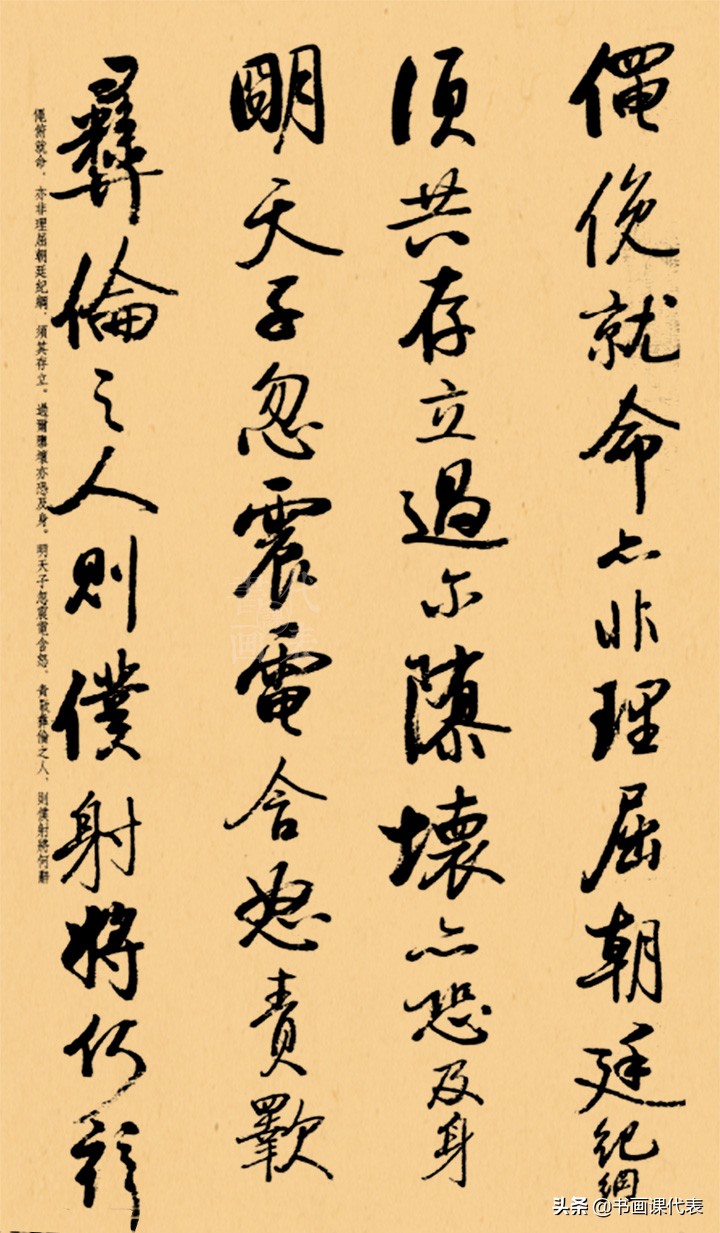 僶俛就命亦非理屈朝廷紀綱
須共存立過尔隳壞亦恐及身
明天子忽震電含怒責斁
彝倫之人則僕射將何辭
僶俯就命，亦非理屈朝廷紀綱，須共存立。過爾隳壞亦恐及身。明天子忽震電含怒，責斁彝倫之人，則僕射將何辭
头条 @书画课代表